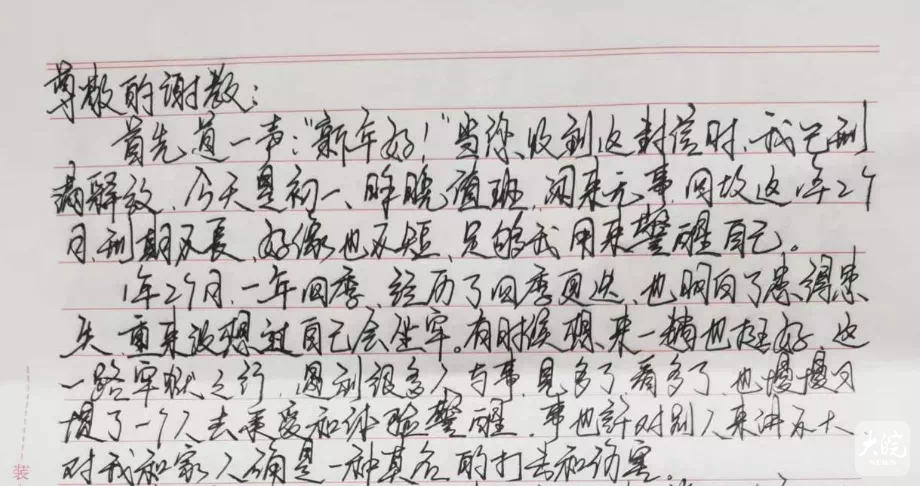 尊敬的谢教:
首先道一声:“新年好!”当你收到这封信时,我已刑
满解放,今天是初一、昨晚值班,闲来无事,回故这1年2个
月,刑期不长,好像也不短,足够我用来警醒自己。
1年2个月,一年四季,经历了四季更迭,也明白了患得患
失,重来没想过自己会坐牢。有时候想,来一躺也挺好,这
一路牢狱之行,遇到很多人与事,见多了看多了,也慢慢习
惯了一个人去承受和体验警醒,事也许对别人来讲不大
对我和家人确是一种莫名的打击和伤害。
装
大皖
NEWS